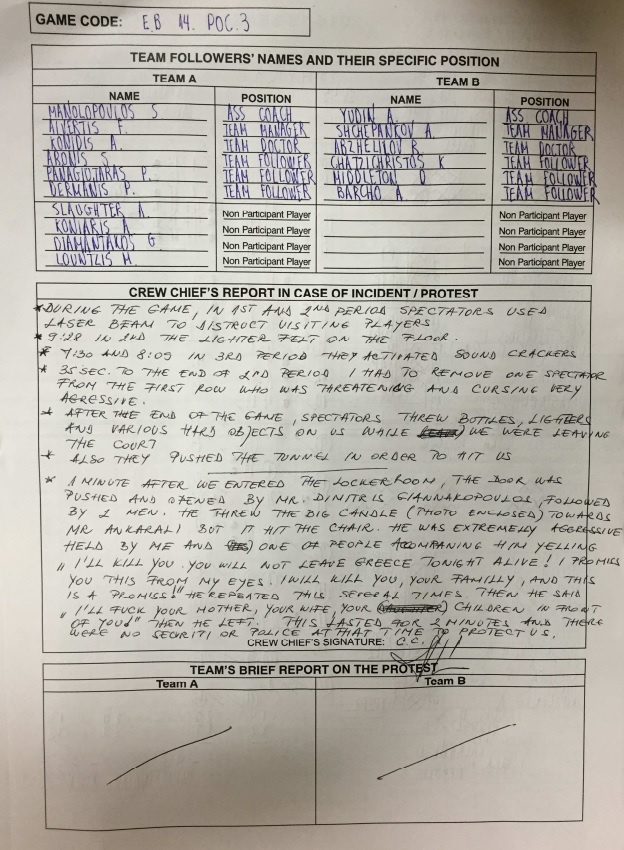 GAME CODE: EB 14. POC.3
TEAM FOLLOWERS' NAMES AND THEIR SPECIFIC POSITION
TEAM A TEAM B
NAME POSITION NAME POSITION
MANOLOPOULOS S ASS COACH YUDIN A. ASS COACH
ALVERTIS F. TEAM MANAGER SHCHEPANKOV A. TEAM MANAGER
KONIDIS A. TEAM DOCTOR ABZHELILOV R. TEAM DOCTOR
ARONIS S TEAM FOLLOWER CHATZICHRISTOS K TEAM FOLLOWER
PANAGIOTARAS P. TEAM FOLLOWER MIDDLETON D TEAM FOLLOWER
DERMANIS P. TEAM FOLLOWER BARCHO A TEAM FOLLOWER
SLAUGHTER A. Non Participant Player Non Participant Player
KONIARIS A Non Participant Player Non Participant Player
DIAMANTAKOS G Non Participant Player Non Participant Player
LOUNTZIS M. Non Participant Player Non Participant Player
CREW CHIEF'S REPORT IN CASE OF INCIDENT / PROTEST
* DURING THE GAME, IN 1ST AND 2ND PERIOD SPECTATORS USED
LASER BEAM TO DISTRUCT VISITING PLAYERS
* 9:28 IN 2ND THE LIGHTER FELT ON THE FLOOR.
* 7:30 AND 8:09 IN 3RD PERIOD THEY ACTIVATED SOUND CRACKERS
* 35 SEC. TO THE END OF 2ND PERIOD I HAD TO REMOVE ONE SPECTATOR
FROM THE FIRST ROW WHO WAS THREATENING AND CURSING VERY
AGRESSIVE.
* AFTER THE END OF THE GAME, SPECTATORS THREW BOTTLES, LIGHTERS
AND VARIOUS HARD OBJECTS ON US WHILE WE WERE LEAVING
THE COURT
* ALSO THEY PUSHED THE TUNNEL IN ORDER TO HIT US
* 1 MINUTE AFTER WE ENTERED THE LOCKERROOM, THE DOOR WAS
PUSHED AND OPENED BY MR. DIMITRIS GIANNAKOPOULOS, FOLLOWED
BY 2 MEN. HE THREW THE BIG CANDLE (PHOTO ENCLOSED) TOWARDS
MR ANKARALI BUT IT HIT THE CHAIR. HE WAS EXTREMELLY AGGRESSIVE
HELD BY ME AND ONE OF PEOPLE ACCOMPANING HIM YELLING
„I'LL KILL YOU. YOU WILL NOT LEAVE GREECE TONIGHT ALIVE! I PROMISS
YOU THIS FROM MY EYES. I WILL KILL YOU, YOUR FAMILLY, AND THIS
IS A PROMISS!" HE REPEATED THIS SEVERAL TIMES. THEN HE SAID
„I'LL FUCK YOUR MOTHER, YOUR WIFE, YOUR CHILDREN IN FRONT
OF YOU!" THEN HE LEFT. THIS LASTED FOR 2 MINUTES AND THERE
WERE NO SECURITI OR POLICE AT THAT TIME TO PROTECT US.
CREW CHIEF'S SIGNATURE: C.C.
TEAM'S BRIEF REPORT ON THE PROTEST
Team A Team B